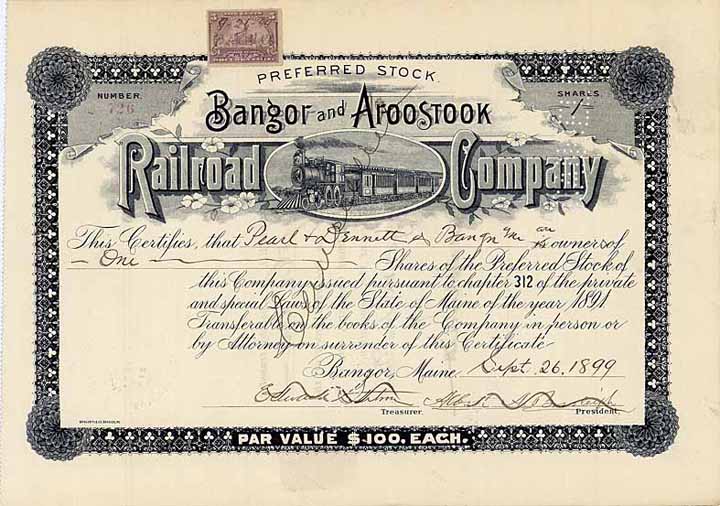 PREFERRED STOCK.
NUMBER
726
SHARES
1
Bangor and Aroostook
Railroad Company
This Certifies, that Pearl & Dennett of Bangor Me are owners of
One Shares of the Preferred Stock of
this Company issued pursuant to chapter 312 of the private
and special Laws of the State of Maine of the year 1891
Transferable on the books of the Company in person or
by Attorney on surrender of this Certificate
Bangor, Maine. Sept. 26. 1899
Treasurer.
President.
PAR VALUE $100. EACH.